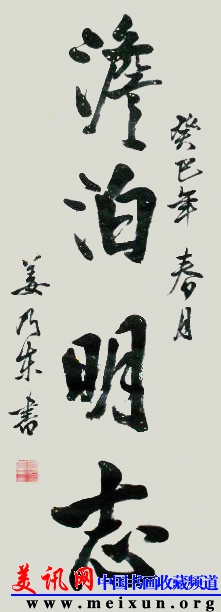 癸巳年 春月
澹泊明志
姜乃朱書
美讯网 中国书画收藏频道
www.meixun.org